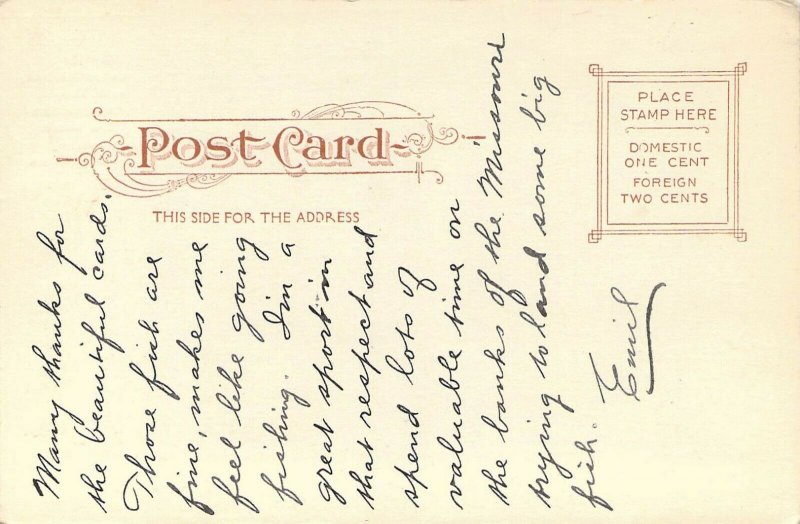 Post Card
THIS SIDE FOR THE ADDRESS
PLACE
STAMP HERE
DOMESTIC
ONE CENT
FOREIGN
TWO CENTS
Many thanks for
the beautiful cards.
Those fish are
fine, makes me
feel like going
fishing. I'm a
great sport in
that respect and
spend lots of
valuable time on
the banks of the Missouri
trying to land some big
fish.
Emil